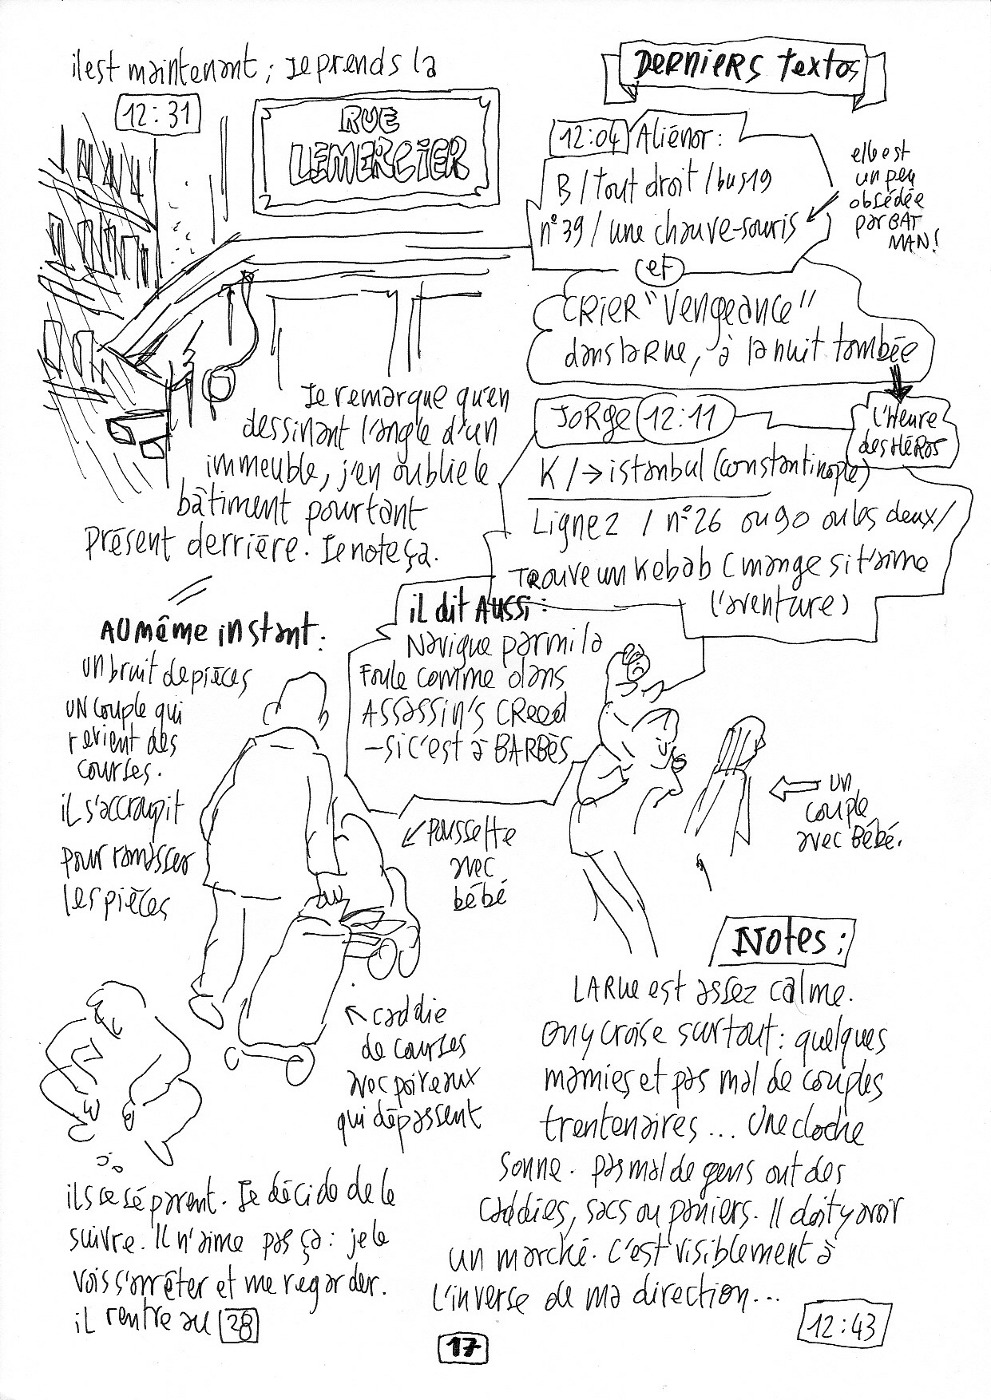 il est maintenant ; Je prends la
12:31
RUE
LEMERCIER
Je remarque qu'en
dessinant l'angle d'un
immeuble, j'en oublie le
bâtiment pourtant
présent derrière. Je note ça.
DERNIERS textos
12:04 Aliénor :
B / tout droit / bus 19
n° 39 / une chauve-souris
elle est
un peu
obsédée
par BAT
MAN !
et
CRIER "Vengeance"
dans la Rue, à la nuit tombée
L'Heure
des Héros
JORGE 12:11
K / → istanbul (constantinople)
Ligne 2 / n° 26 ou 90 ou les deux /
TROUVE un Kebab (mange si t'aime
l'aventure)
il dit Aussi :
Navigue parmi la
Foule comme dans
ASSASSIN'S CReed
- si c'est à BARBÈS
AU même instant :
un bruit de pièces
UN couple qui
revient des
courses.
il s'accroupit
pour ramasser
les pièces
poussette
avec
bébé
un
couple
avec Bébé.
caddie
de courses
avec poireaux
qui dépassent
ils se séparent. Je décide de le
suivre. Il n'aime pas ça : je le
vois s'arrêter et me regarder.
il rentre au 28
Notes :
LA Rue est assez calme.
On y croise surtout : quelques
mamies et pas mal de couples
trentenaires... Une cloche
sonne. Pas mal de gens ont des
caddies, sacs ou paniers. Il doit y avoir
un marché. C'est visiblement à
l'inverse de ma direction...
12:43
17